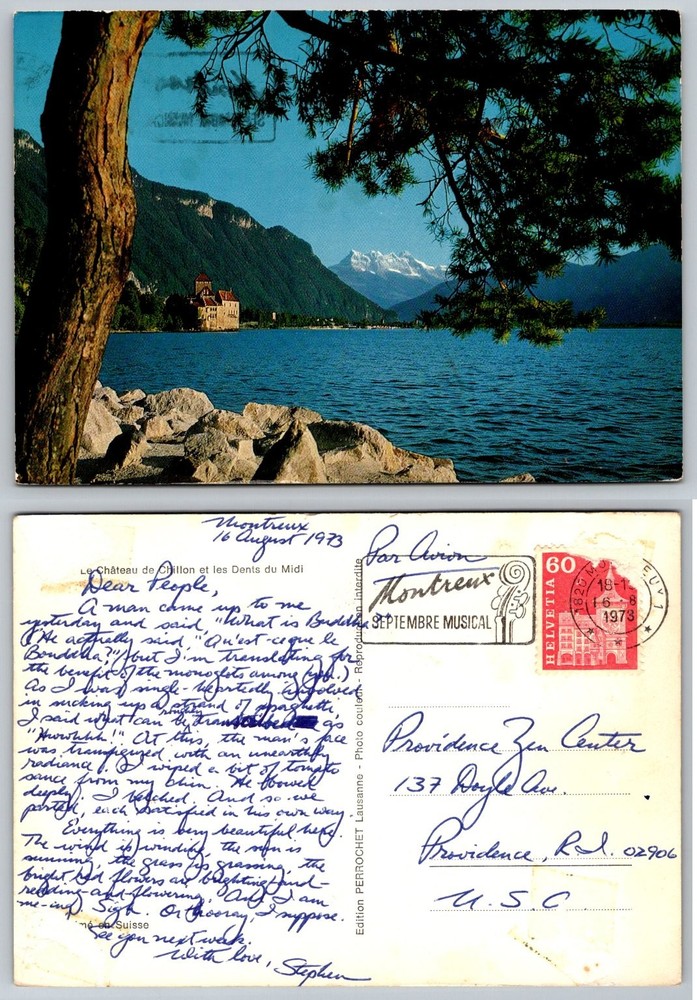 Montreux
16 August 1973
Le Château de Chillon et les Dents du Midi
Dear People,
A man came up to me
yesterday and said, "What is Buddha?"
(He actually said, "Qu'est-ce que le
Bouddha?" but I'm translating for
the benefit of the monoglots among you.)
As I was single-heartedly involved
in sucking up a strand of spaghetti
I said what can be roughly as
"Hwwhhh!" At this, the man's face
was transfigured with an unearthly
radiance. I wiped a bit of tomato
sauce from my chin. He bowed
deeply. I belched. And so we
parted, each satisfied in his own way.
Everything is very beautiful here.
The wind is winding, the sun is
sunning, the grass is grassing, the
bright red flowers are brighting and
redding and flowering. And I am
me-ing. Sigh. Or hooray, I suppose.
See you next week.
With love, Stephen
en Suisse
Edition PERROCHET Lausanne - Photo couleur - Reproduction interdite
Par Avion
Montreux
SEPTEMBRE MUSICAL
60
HELVETIA
1820 MO EUX 1
18-1
16-8
1973
Providence Zen Center
137 Doyle Ave.
Providence, R.I. 02906
U.S.A